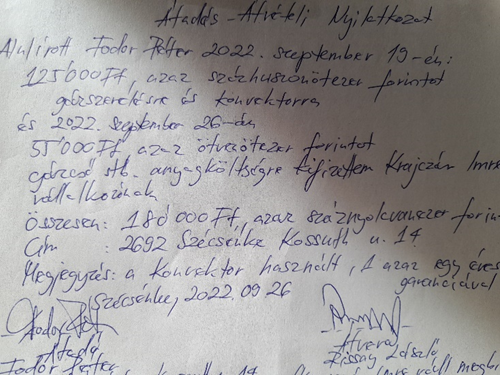 Átadás-Átvételi Nyilatkozat
Alulírott Fodor Péter 2022. szeptember 19-én:
125'000Ft, azaz százhuszonötezer forintot
gázszerelésre és konvektorra
és 2022. szeptember 26-án
55'000Ft, azaz ötvenötezer forintot
gázcső stb. anyagköltségre kifizettem Krajczár Imre
vállalkozónak
Összesen: 180'000Ft, azaz száznyolcvanezer forin
Cím : 2692 Szécsénke Kossuth u. 14.
Megjegyzés: a konvektor használt, 1 azaz egy éves
garanciával
Szécsénke, 2022.09.26
Átadó
Átvevő
Fodor Péter
László